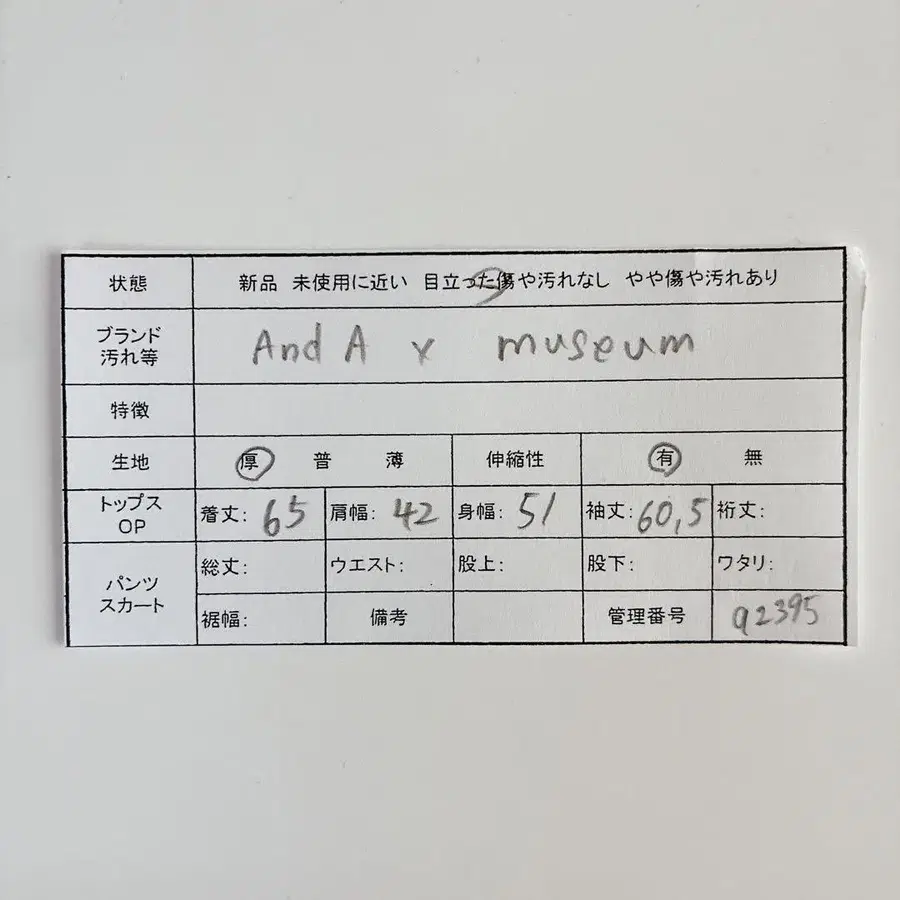 状態 新品 未使用に近い 目立った傷や汚れなし やや傷や汚れあり
ブランド
汚れ等
And A x museum
特徴
生地 厚 普 薄 伸縮性 有 無
トップス
OP
着丈: 65 肩幅: 42 身幅: 51 袖丈: 60,5 裄丈:
パンツ
スカート
総丈: ウエスト: 股上: 股下: ワタリ:
裾幅: 備考 管理番号 a2395